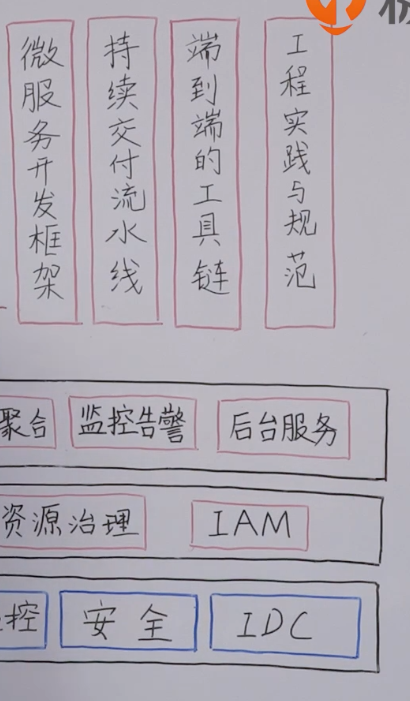 微服务开发框架
持续交付流水线
端到端的工具链
工程实践与规范
聚合 监控告警 后台服务
资源治理 IAM
控 安全 IDC